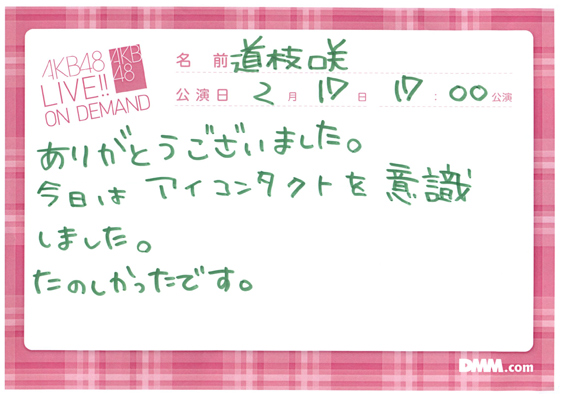 AKB48
LIVE!!
ON DEMAND
AKB
48
名 前 道枝咲
公演日 2月 17日 17:00公演
ありがとうございました。
今日は アイコンタクトを 意識
しました。
たのしかったです。
DMM.com